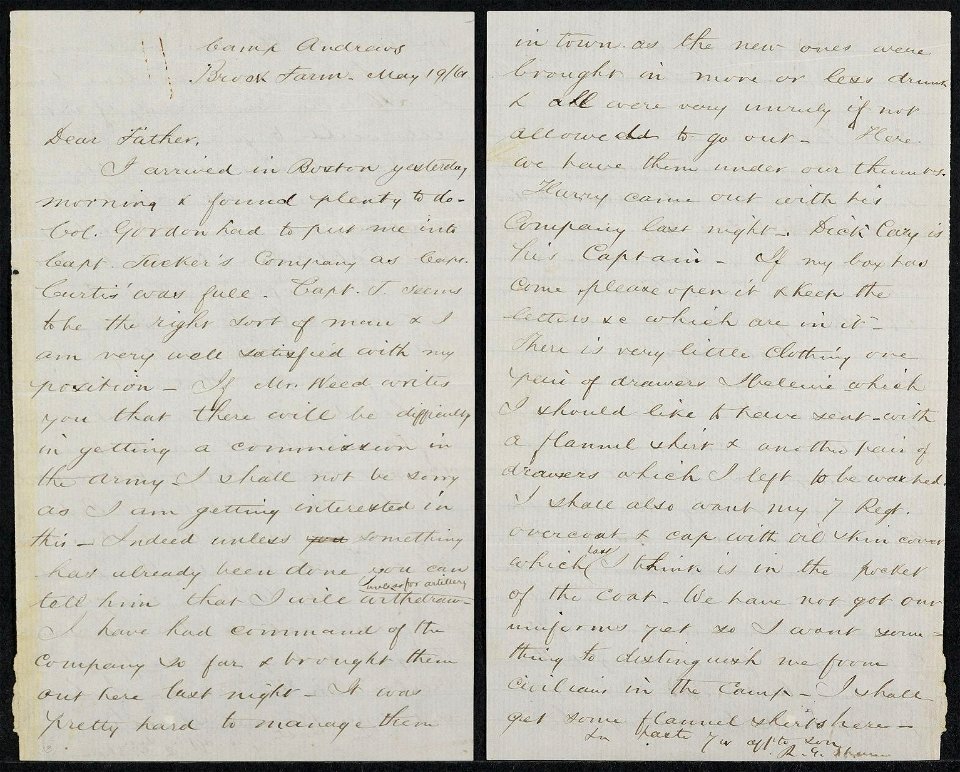 Camp Andrews
Brook Farm - May 19/61
Dear Father,
I arrived in Boston yesterday
morning & found plenty to do -
Col. Gordon had to put me into
Capt. Tucker's Company as Capt.
Curtis' was full. Capt. T. seems
to be the right sort of man & I
am very well satisfied with my
position - If Mr. Weed writes
you that there will be difficulty
in getting a commission in
the army I shall not be sorry
as I am getting interested in
this - Indeed unless you something
has already been done you can
unless for artillery
tell him that I will withdraw -
I have had command of the
Company so far & brought them
out here last night - It was
pretty hard to manage them
in town as the new ones were
brought in more or less drunk
& all were very unruly if not
allowed to go out - Here
we have them under our thumbs.
Harry came out with his
Company last night - Dick Cary is
his Captain - If my box has
come please open it & keep the
letters &c which are in it -
There is very little clothing one
pair of drawers I believe which
I should like to have sent with
a flannel shirt & another pair of
drawers which I left to be washed.
I shall also want my 7 Regt.
overcoat & cap with oil skin cover
which last I think is in the pocket
of the coat. We have not got our
uniforms yet so I want some-
thing to distinguish me from
civilians in the camp - I shall
get some flannel shirts here -
In haste Yr aff'te son
R. G. Shaw